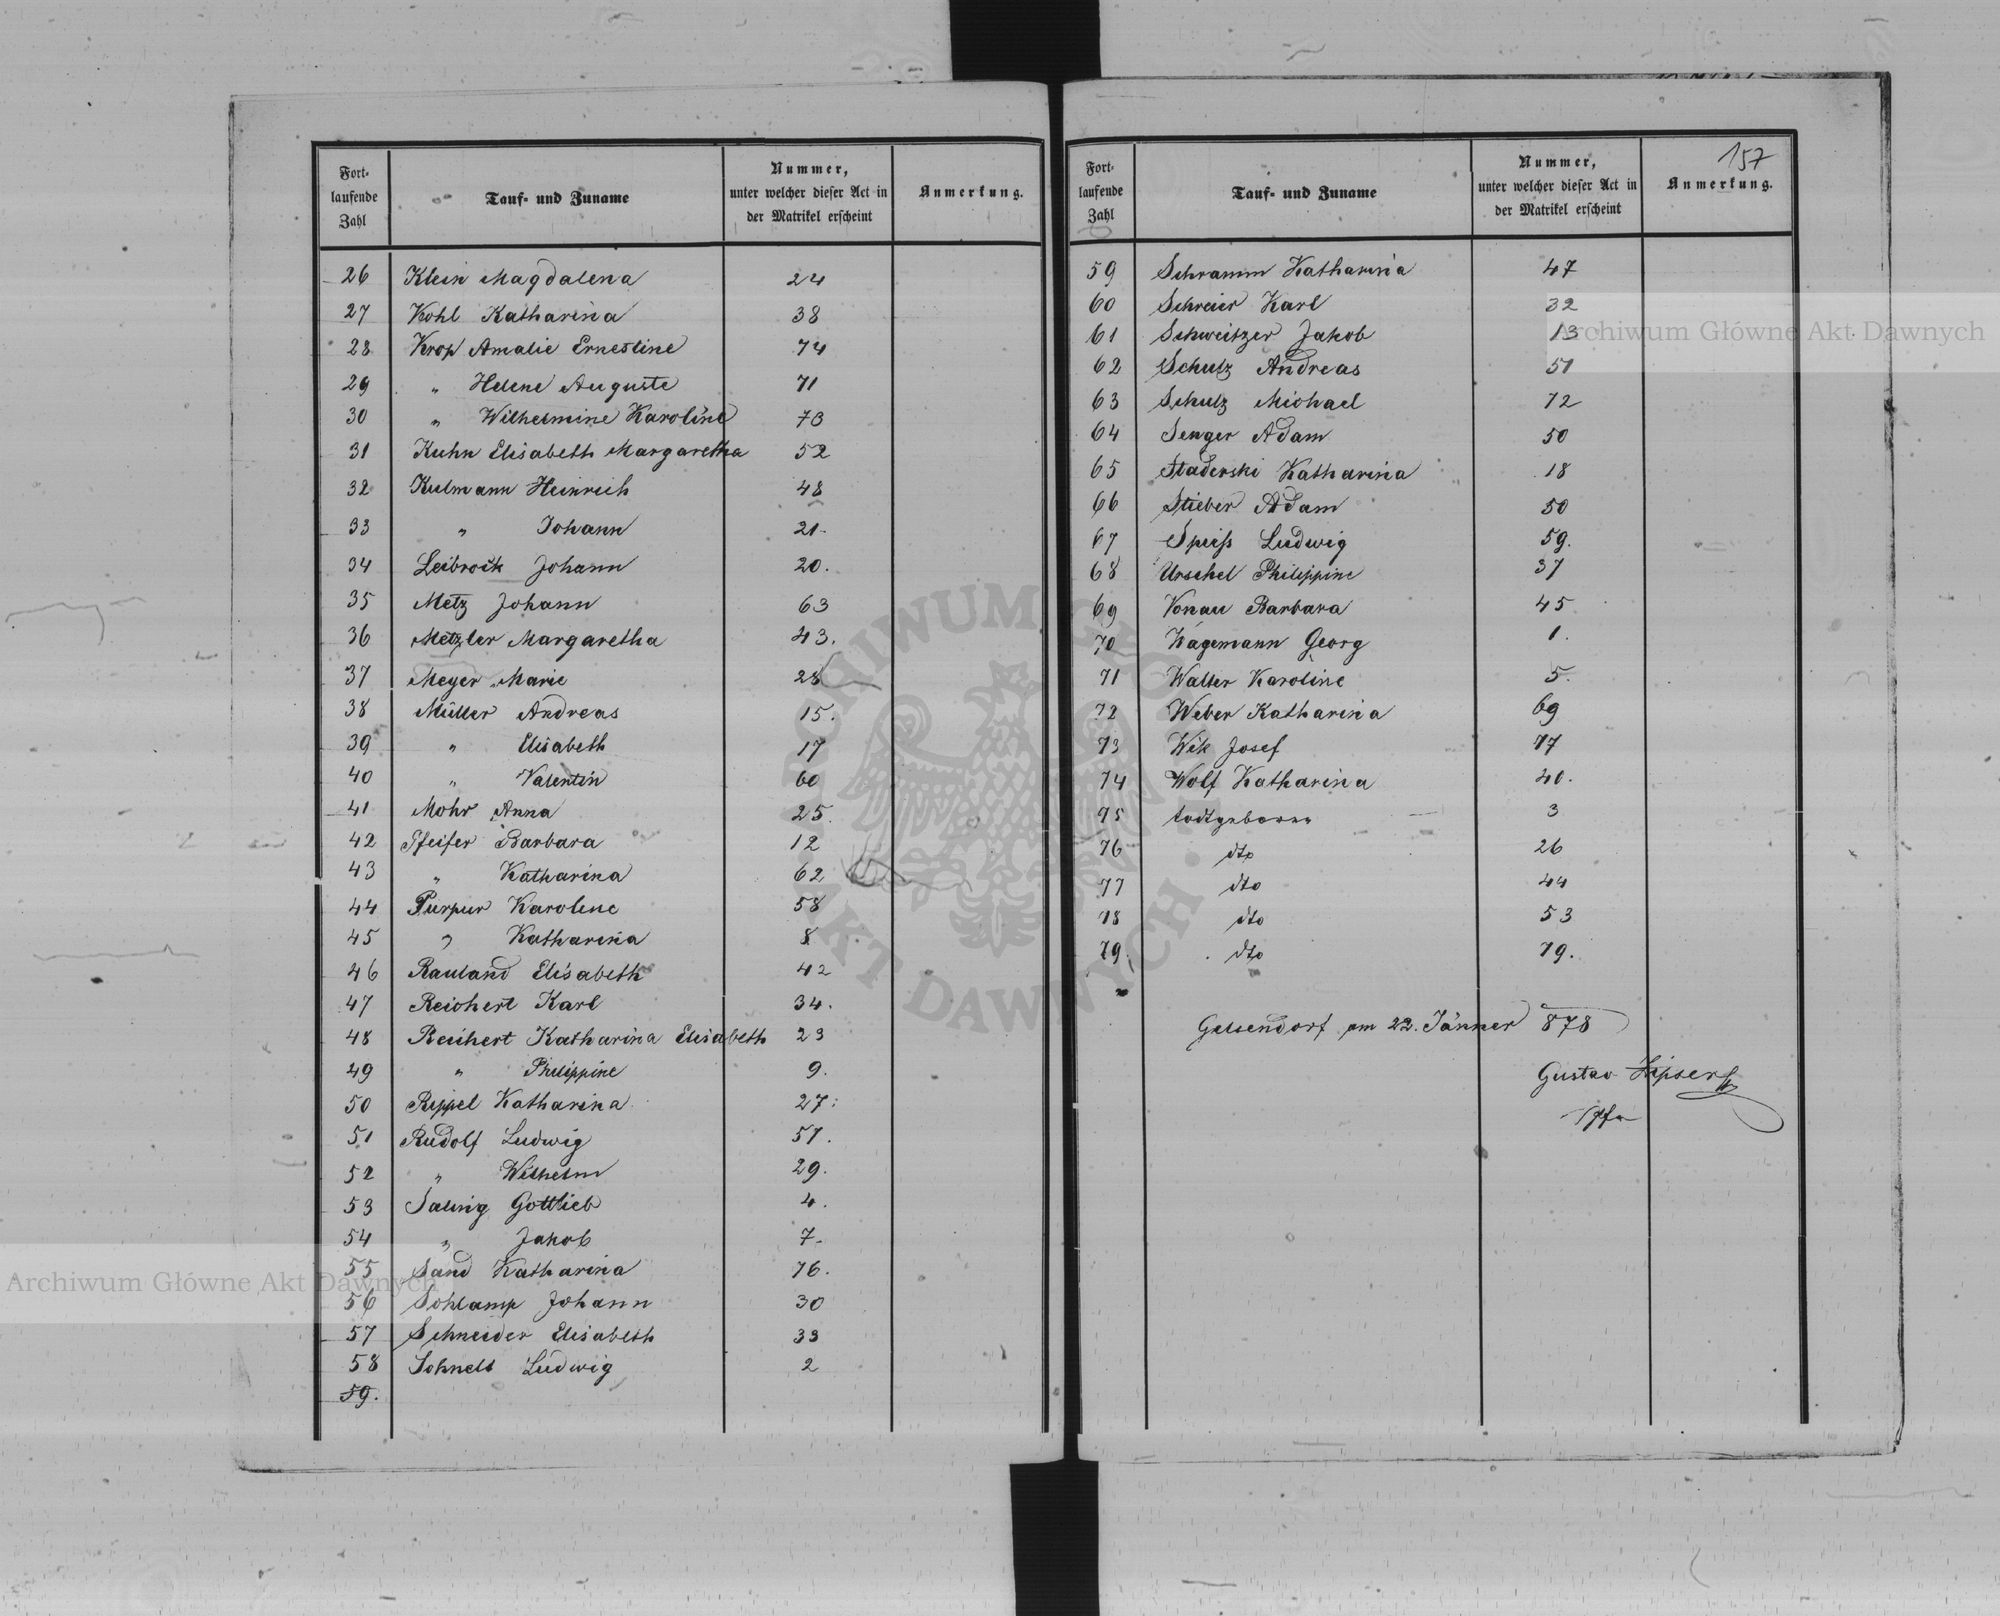 Fort-
laufende
Zahl
Tauf- und Zuname
Nummer,
unter welcher dieser Act in
der Matrikel erscheint
Anmerkung.
26 Klein Magdalena 24
27 Kohl Katharina 38
28 Krop Amalie Ernestine 74
29 " Helene Auguste 71
30 " Wilhelmine Karoline 73
31 Kuhn Elisabeth Margaretha 52
32 Kulmann Heinrich 48
33 " Johann 21.
34 Leibrock Johann 20.
35 Metz Johann 63
36 Metzler Margaretha 43.
37 Meyer Marie 28
38 Müller Andreas 15.
39 " Elisabeth 17
40 " Valentin 60
41 Mohr Anna 25.
42 Pfeifer Barbara 12
43 " Katharina 62
44 Purpur Karoline 58
45 " Katharina 8
46 Rauland Elisabeth 42
47 Reichert Karl 34.
48 Reichert Katharina Elisabeth 23
49 " Philippine 9.
50 Rippel Katharina 27.
51 Rudolf Ludwig 57.
52 " Wilhelm 29.
53 Saling Gottlieb 4.
54 " Jakob 7.
55 Sand Katharina 76.
56 Schlamp Johann 30
57 Schneider Elisabeth 33
58 Schnell Ludwig 2
59.
157
Fort-
laufende
Zahl
Tauf- und Zuname
Nummer,
unter welcher dieser Act in
der Matrikel erscheint
Anmerkung.
59 Schramm Katharina 47
60 Schreier Karl 32
61 Schweitzer Jakob 13
62 Schulz Andreas 51
63 Schulz Michael 72
64 Senger Adam 50
65 Staderski Katharina 18
66 Stieber Adam 50
67 Speiß Ludwig 59.
68 Urschel Philippine 37
69 Vonau Barbara 45
70 Wagemann Georg 1.
71 Walter Karoline 5.
72 Weber Katharina 69
73 Wik Josef 77
74 Wolf Katharina 40.
75 todtgeboren 3
76 dto 26
77 dto 44
78 dto 53
79. dto 79.
Gelsendorf am 22. Jänner 878
Gustav Lipser
Archiwum Główne Akt Dawnych
Archiwum Główne Akt Dawnych
ARCHIWUM GŁÓWNE AKT DAWNYCH